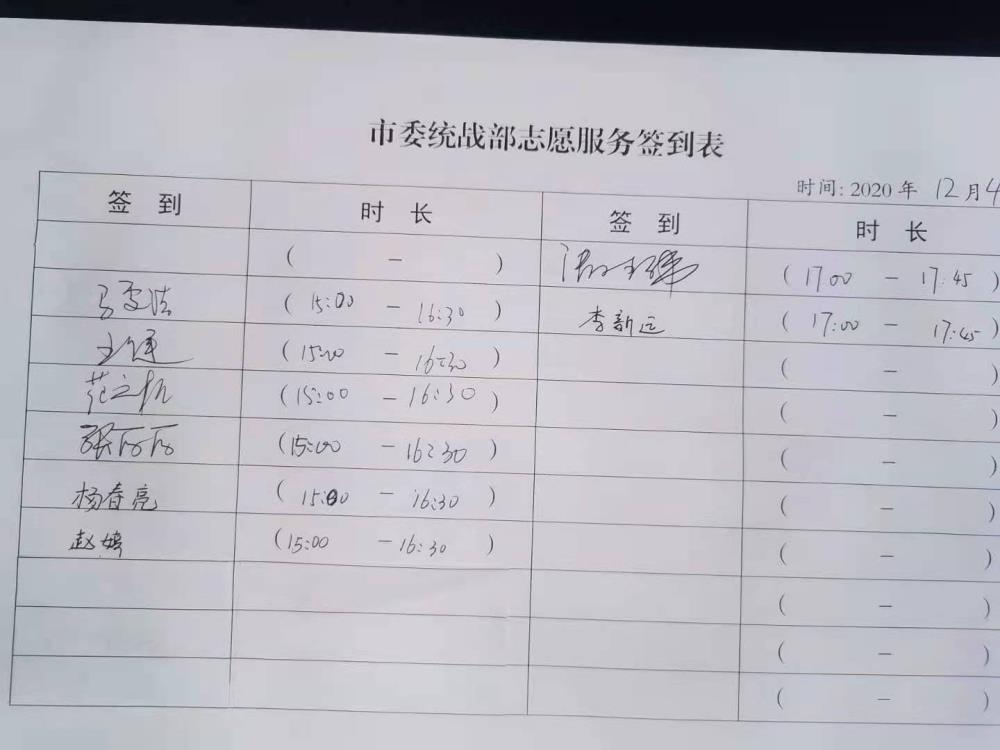 市委统战部志愿服务签到表
时间: 2020 年 12月4
签 到 时 长 签 到 时 长
( - ) (17:00 - 17:45)
(15:00 - 16:30) 李新远 (17:00 - 17:45)
王健 (15:00 - 16:30) ( - )
(15:00 - 16:30) ( - )
张 (15:00 - 16:30) ( - )
杨春亮 (15:00 - 16:30) ( - )
赵婷 (15:00 - 16:30) ( - )
( - )
( - )
( - )